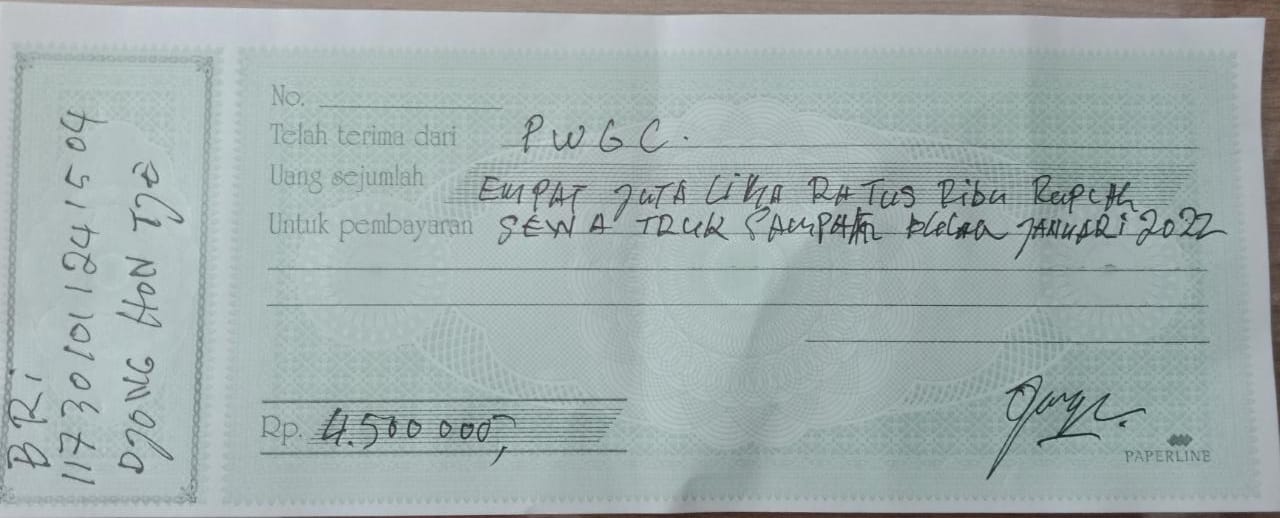 BRI
117301011241504
DJONG HON TJO
No.
Telah terima dari PWGC.
Uang sejumlah EMPAT JUTA LIMA RATUS Ribu Rupiah
Untuk pembayaran SEWA TRUK SAMPAH BULAN JANUARI 2022
Rp. 4.500 000,
PAPERLINE